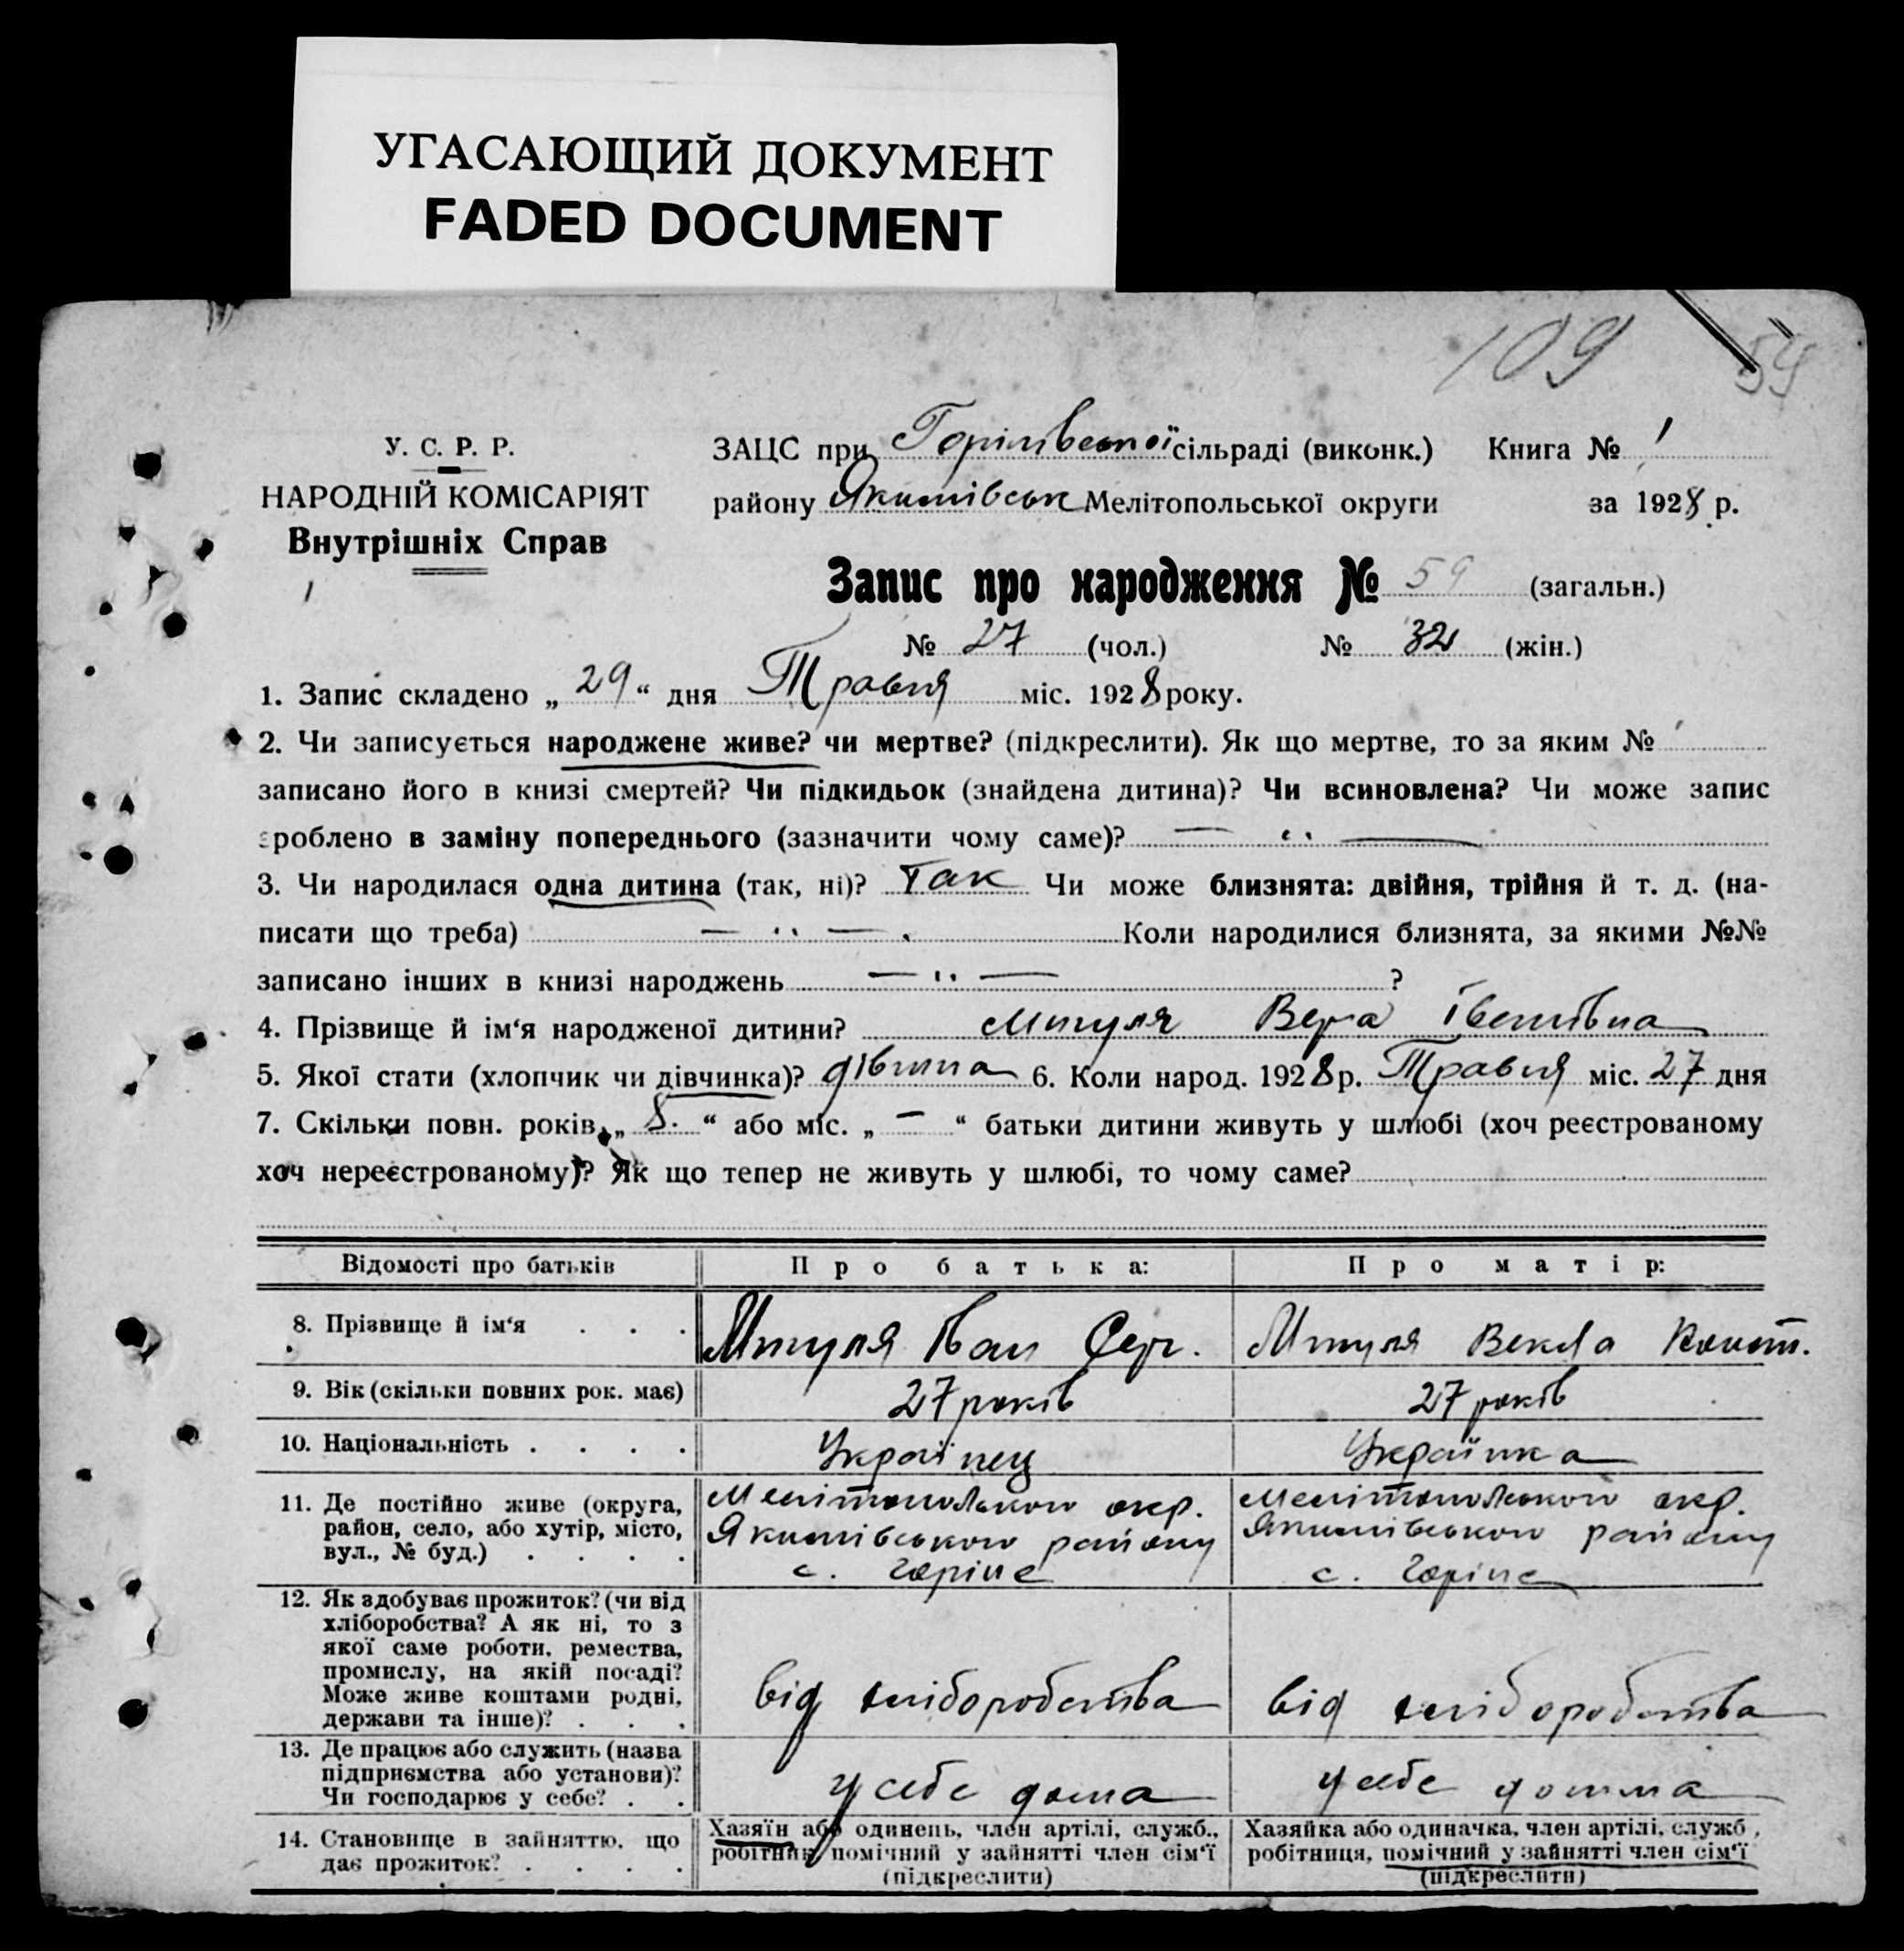 УГАСАЮЩИЙ ДОКУМЕНТ
FADED DOCUMENT
109
59
У. С. Р. Р.
НАРОДНІЙ КОМІСАРІЯТ
Внутрішніх Справ
ЗАЦС при Горілівської сільраді (виконк.) Книга № 1
району Якимівськ Мелітопольської округи за 1928 р.
Запис про народження № 59 (загальн.)
№ 27 (чол.) № 32 (жін.)
1. Запис складено „ 29 “ дня Травня міс. 1928 року.
2. Чи записується народжене живе? чи мертве? (підкреслити). Як що мертве, то за яким №
записано його в книзі смертей? Чи підкидьок (знайдена дитина)? Чи всиновлена? Чи може запис
зроблено в заміну попереднього (зазначити чому саме)? — „ —
3. Чи народилася одна дитина (так, ні)? Так Чи може близнята: двійня, трійня й т. д. (на-
писати що треба) — „ — Коли народилися близнята, за якими №№
записано інших в книзі народжень — „ — ?
4. Прізвище й ім‘я народженої дитини? Мигуля Вера Івенівна
5. Якої стати (хлопчик чи дівчинка)? дівчина 6. Коли народ. 1928 р. Травня міс. 27 дня
7. Скільки повн. років „ 8. “ або міс. „ — “ батьки дитини живуть у шлюбі (хоч реєстрованому
хоч нереєстрованому)? Як що тепер не живуть у шлюбі, то чому саме?
Відомості про батьків Про батька: Про матір:
8. Прізвище й ім‘я . . . Мигуля Іван Серг. Мигуля Векла Конст.
9. Вік (скільки повних рок. має) 27 років 27 років
10. Національність . . . . Українец Українка
11. Де постійно живе (округа, район, село, або хутір, місто, вул., № буд.) . . . .
Мелітопольского окр. Мелітопольского окр.
Якимівського району Якимівського району
с. Горіле с. Горіле
12. Як здобуває прожиток? (чи від
хліборобства? А як ні, то з
якої саме роботи, ремества,
промислу, на якій посаді?
Може живе коштами родні,
держави та інше)? . . .
від хліборобства від хліборобства
13. Де працює або служить (назва
підприємства або установи)?
Чи господарює у себе? . .
у себе дома у себе домма
14. Становище в зайняттю, що
дає прожиток? . . . .
Хазяїн або одинець, член артілі, служб.,
робітник, помічний у зайнятті член сім‘ї
(підкреслити)
Хазяйка або одиначка, член артілі, служб.,
робітниця, помічний у зайнятті член сім‘ї
(підкреслити)